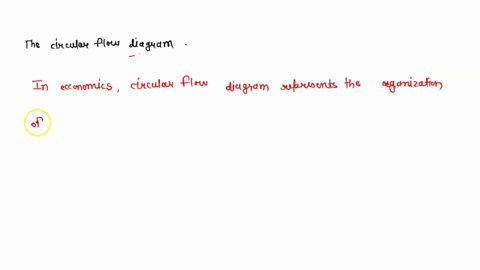 The circular flow diagram.
In economics, circular flow diagram represents the organization
of